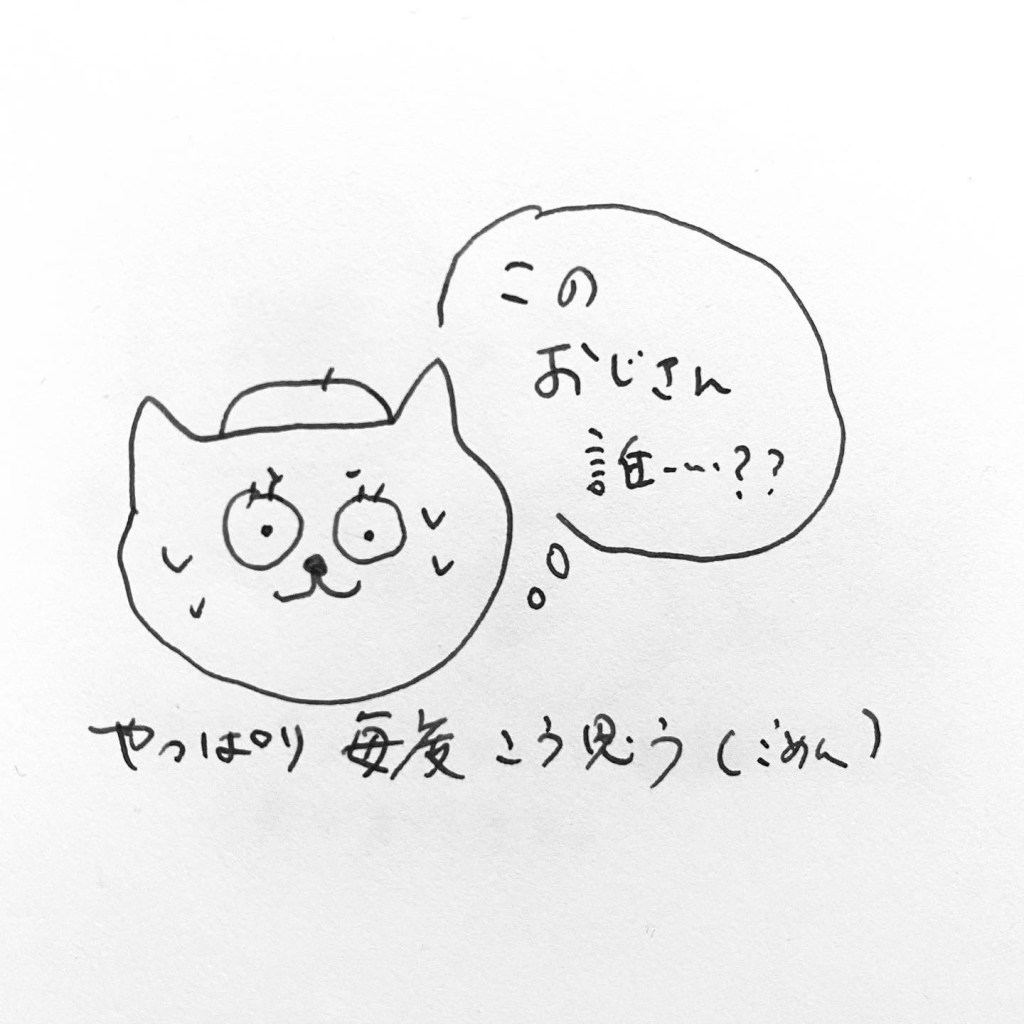 この
おじさん
誰……??
やっぱり 毎度 こう思う(ごめん)